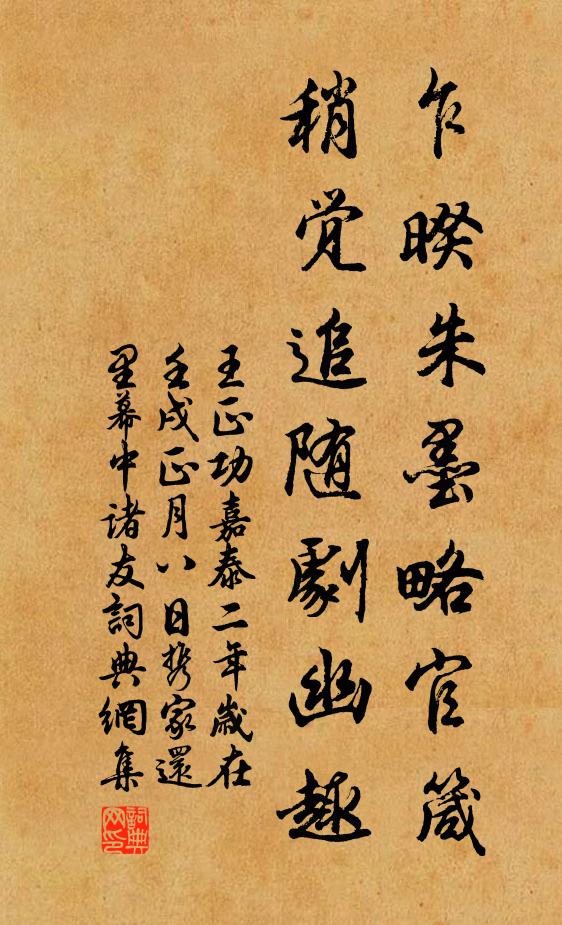 乍暌朱墨略官箴
稍觉追随劇幽趣
王正功嘉泰二年歳在
壬戌正月八日携家還
里幕中诸友詞典網集
詞典网印